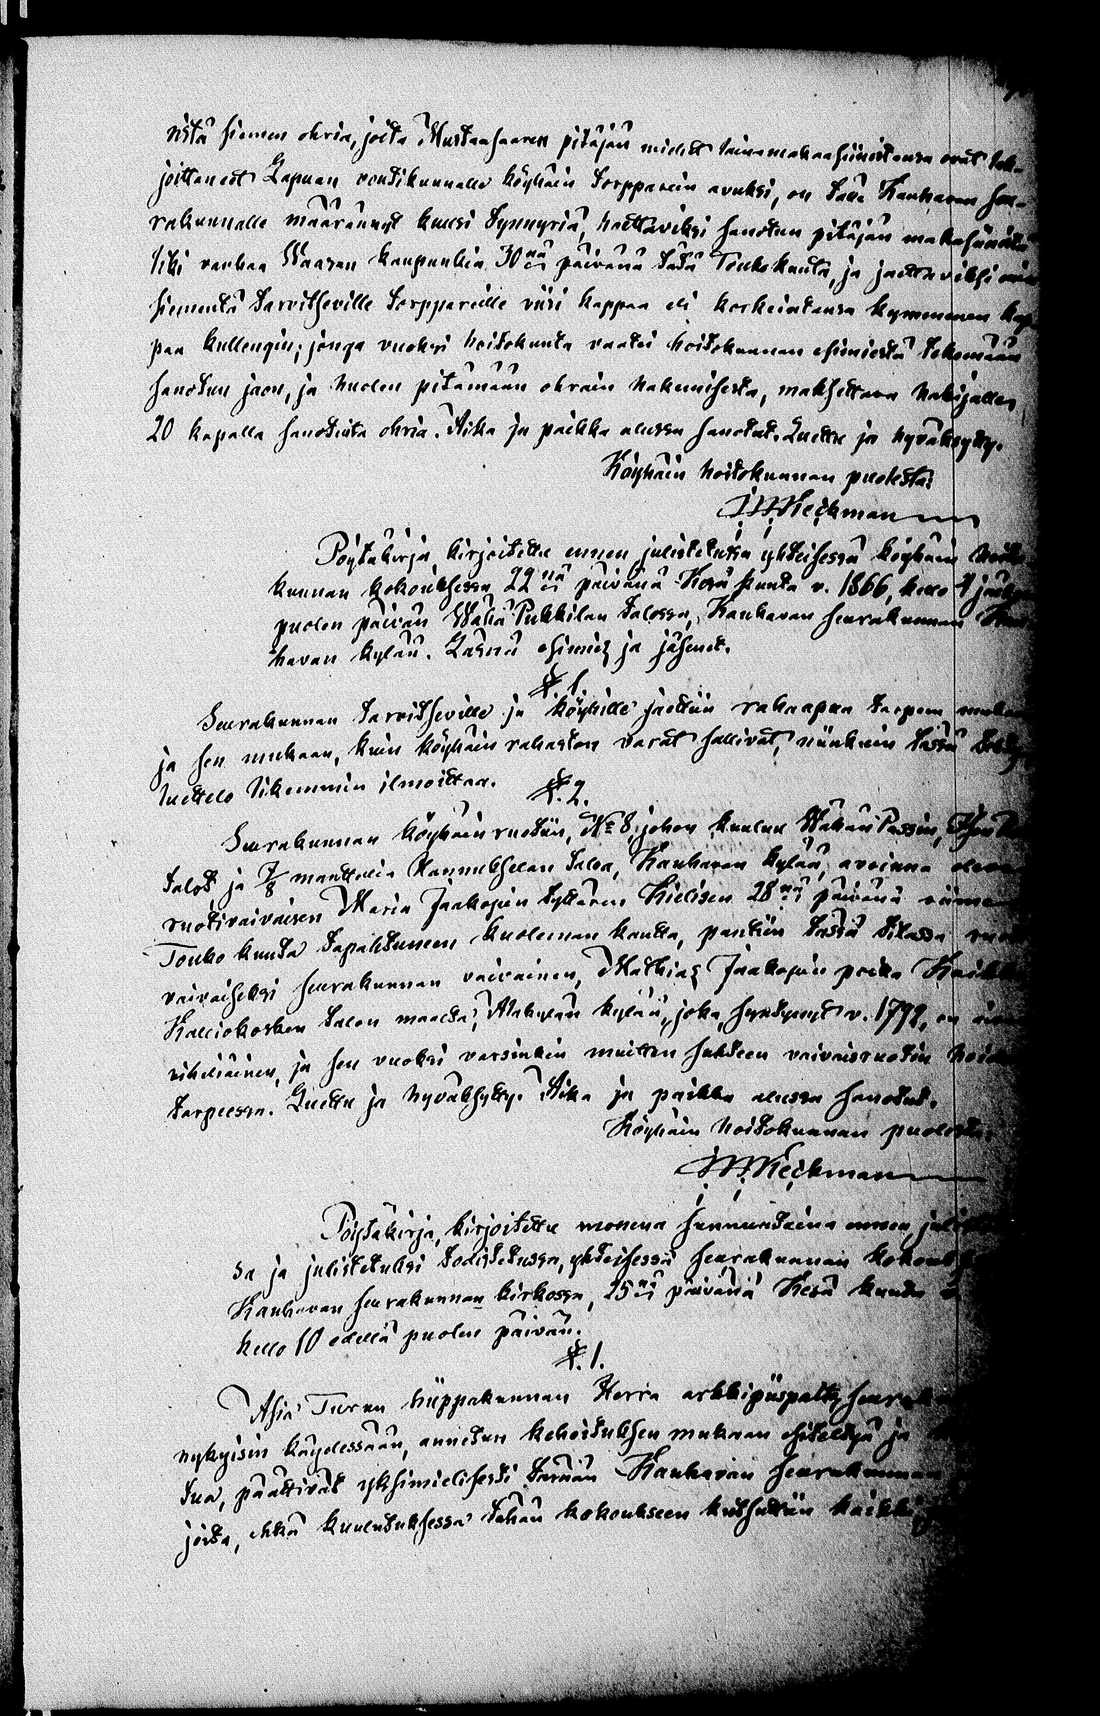 nistä siemen ohria, joita Mustansaaren pitäjän miehet lainamakasiinistansa ovat lah-
joittaneet Lapuan voutikunnalle köyhäin torpparein avuksi, on tälle Kauhavan seu-
rakunnalle määrännyt kuusi tynnyriä, haettaviksi sanotun pitäjän makasiinista
liki vanhaa Waasan kaupunkia 30nä päivänä tätä Toukokuuta, ja jaettaviksi
siementä tarvitseville torppareille viisi kappaa eli korkeintansa kymmenen kap-
paa kullengin; jonga vuoksi hoitokunta vaatei hoitokunnan esimiestä tekemään
sanotun jaon, ja huolen pitämään ohrain hakemisesta, maksettava hakijalle
20 kapalla sanotuita ohria. Aika ja paikka alussa sanotut. Luettu ja hyväksytty.
Köyhäin hoitokunnan puolesta:
Heickman
Pöytäkirja kirjoitettu ennen julistetussa yhteisessä köyhäin hoito-
kunnan kokouksessa 22nä päivänä Kesä kuuta v. 1866, kello 4 jälkeen
puolen päivän Wähä Pukkilan talossa, Kauhavan seurakunnan Kau-
havan kylää. Läsnä esimies ja jäsenet.
§ 1.
Seurakunnan tarvitseville ja köyhille jaettiin rahaapua tarpeen mukaan
ja sen mukaan, kuin köyhäin rahaston varat sallivat, niinkuin tässä
luettelo likemmin ilmoittaa.
§. 2.
Seurakunnan köyhäin ruotiin, No 8, johon kuuluu Wähän Passin,
talot ja 7/8 manttalia Hannukselan taloa, Kauhavan kylää, avoinna
ruotivaivaisen Maria Jaakopin tyttären Kielisen 28nä päivänä viime
Touko kuuta tapahtuneen kuoleman kautta, pantiin tässä tilassa
vaivaiseksi seurakunnan vaivainen, Mathias Jaakopin poika
Kalliokosken talon maalta, Alakylän kylää, joka, syntynyt v. 1792, on
viheliäinen, ja sen vuoksi varsinkin muitten suhteen vaivaisruotin
tarpeessa. Luettu ja hyväksytty. Aika ja paikka alussa sanotut.
Köyhäin hoitokunnan puolesta:
Heickman
Pöytäkirja, kirjoitettu monena sunnuntaina ennen
sa ja julistetuksi todistetussa, yhteisessä seurakunnan
Kauhavan seurakunnan kirkossa, 25nä päivänä Kesä kuuta
kello 10 edellä puolen päivän.
§. 1.
Asia Turun hiippakunnan Herra arkkipiispalta,
nykyisin käydessään, annetun kehoituksen mukaan esiteltyä ja
tua, päättivät yksimielisesti tämän Kauhavan seurakunnan
joita, ehkä kuulutuksessa tähän kokoukseen kutsuttiin kaikki